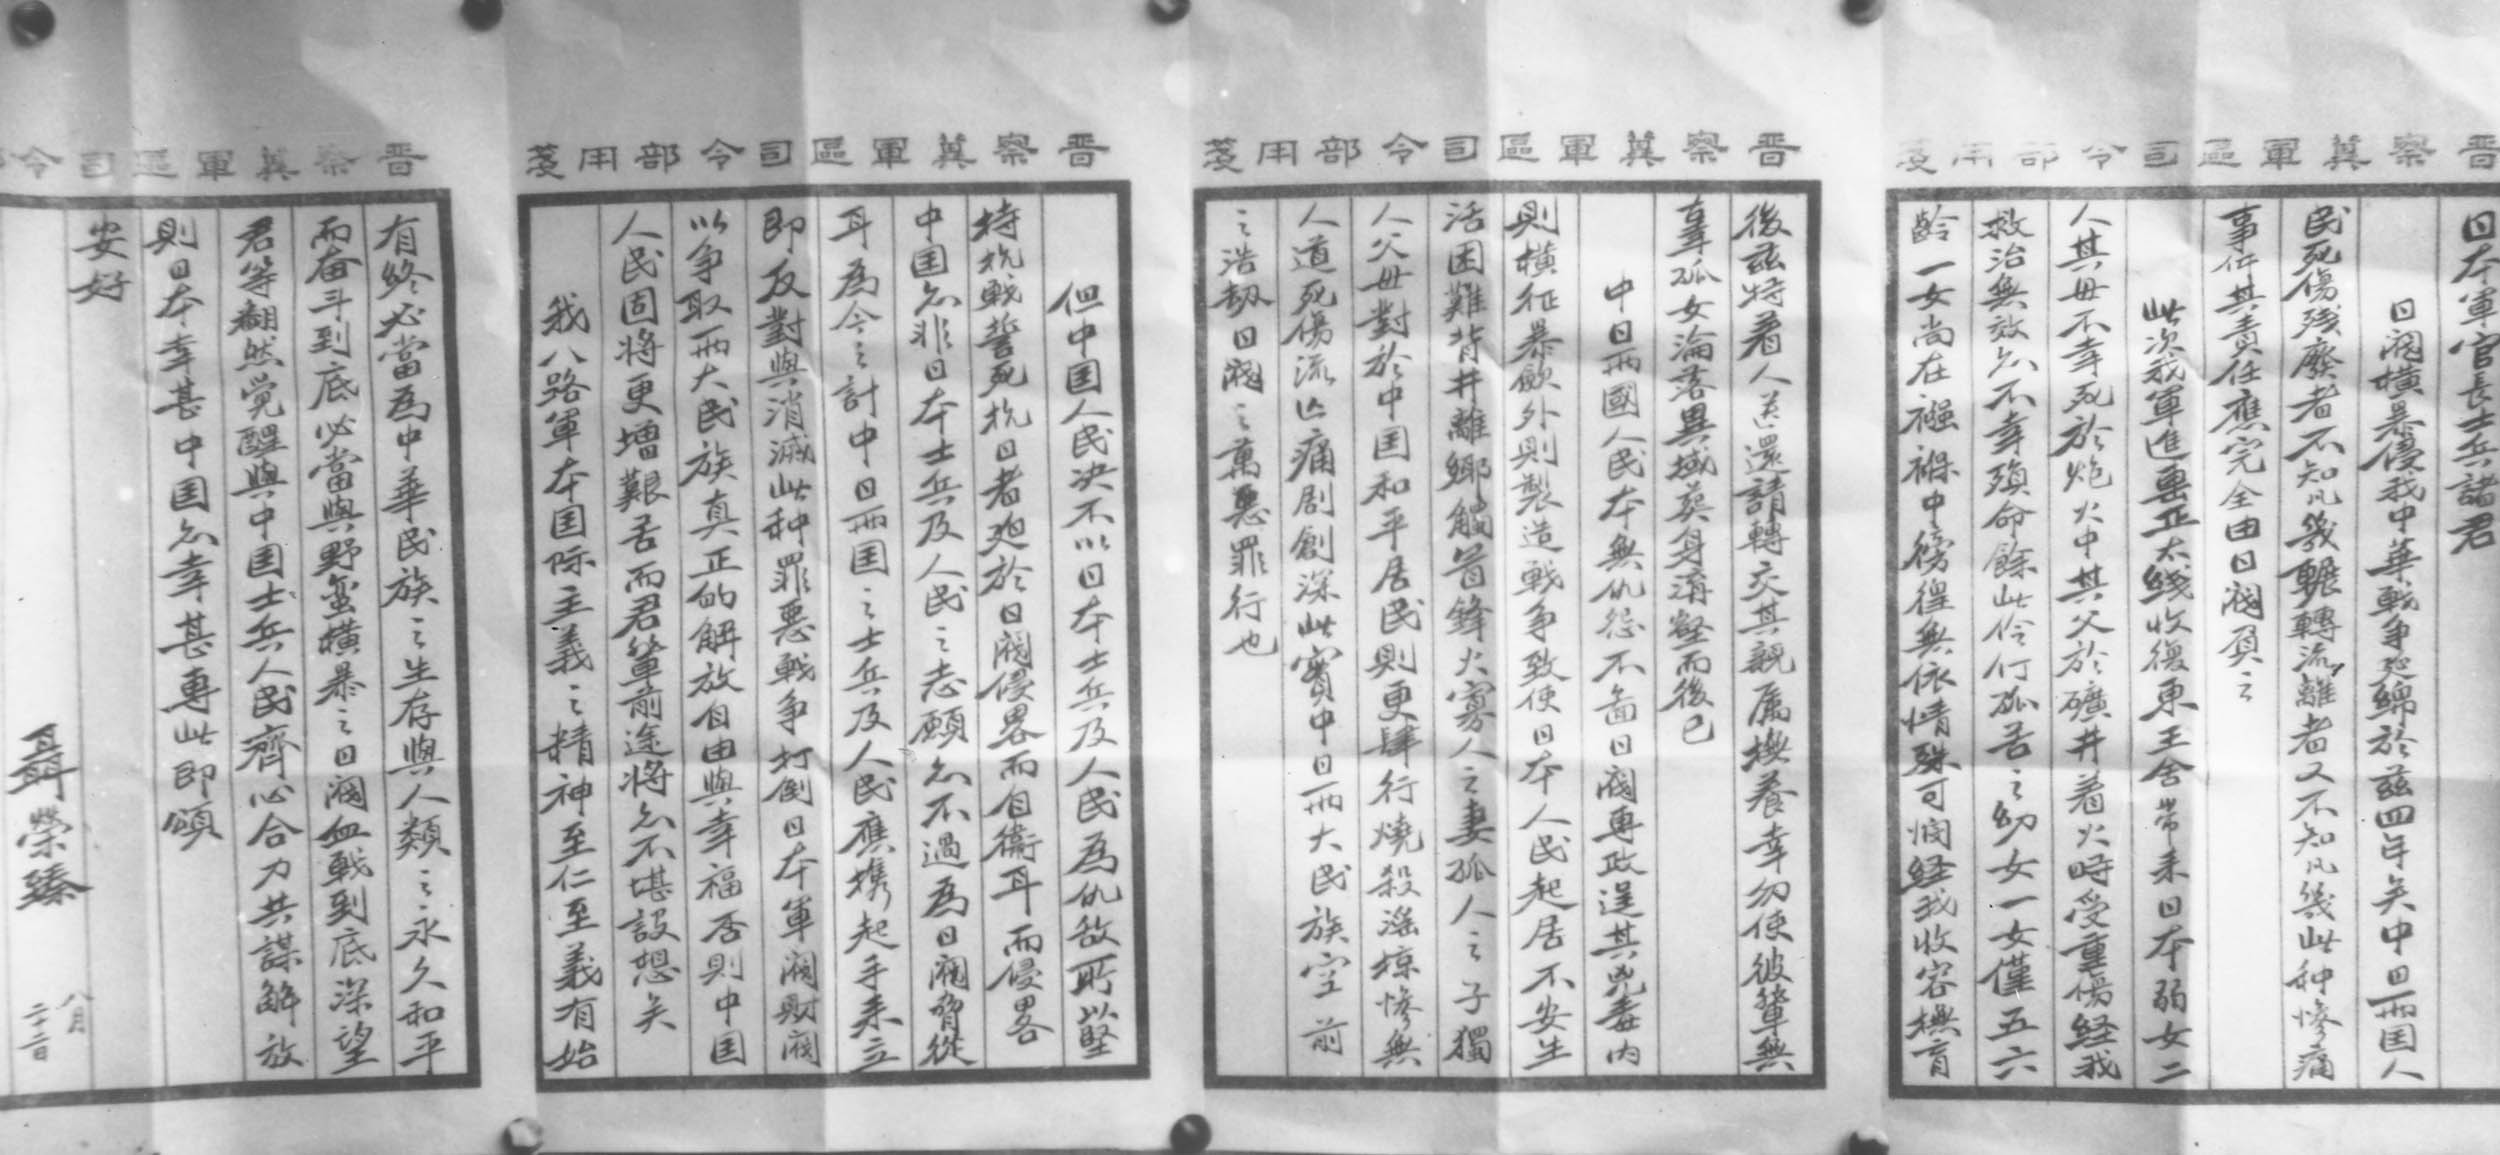 晋察冀軍區司令部用箋
日本軍官長士兵諸君
日閥橫暴侵我中華戰爭延綿於兹四年矣中日兩国人
民死傷殘廢者不知凡幾輾轉流離者又不知凡幾此种慘痛
事件其責任應完全由日閥負之
此次我軍進擊正太綫收復東王舍帶来日本弱女二
人其母不幸死於炮火中其父於礦井着火時受重傷経我
救治無效亦不幸殞命餘此伶仃孤苦之幼女一女僅五六
齡一女尚在襁褓中徬徨無依情殊可憫経我收容撫育
晋察冀軍區司令部用箋
後兹特着人送還請轉交其親属撫養幸勿使彼輩無
辜孤女淪落異域葬身溝壑而後已
中日兩國人民本無仇怨不圖日閥專政逞其兇毒内
則橫征暴歛外則製造戰争致使日本人民起居不安生
活困難背井離鄉觸冒鋒火寡人之妻孤人之子獨
人父母對於中国和平居民則更肆行燒殺滛掠慘無
人道死傷流亡痛剧創深此實中日兩大民族空前
之浩劫日閥之萬惡罪行也
晋察冀軍區司令部用箋
但中国人民决不以日本士兵及人民為仇敌所以堅
持抗戰誓死抗日者廹於日閥侵畧而自衞耳而侵畧
中国亦非日本士兵及人民之志願亦不過為日閥脅從
耳為今之計中日兩国之士兵及人民應携起手来立
即反對與消滅此种罪惡戰争打倒日本軍閥財閥
以争取兩大民族真正的解放自由與幸福否則中国
人民固將更增艱苦而君輩前途將亦不堪設想矣
我八路軍本国际主義之精神至仁至義有始
晋察冀軍區司令
有終必當為中華民族之生存與人類之永久和平
而奋斗到底必當與野蛮橫暴之日閥血戰到底深望
君等翻然覚醒與中国士兵人民齊心合力共謀解放
則日本幸甚中国亦幸甚專此即頌
安好
聶榮臻
八月
二十二日